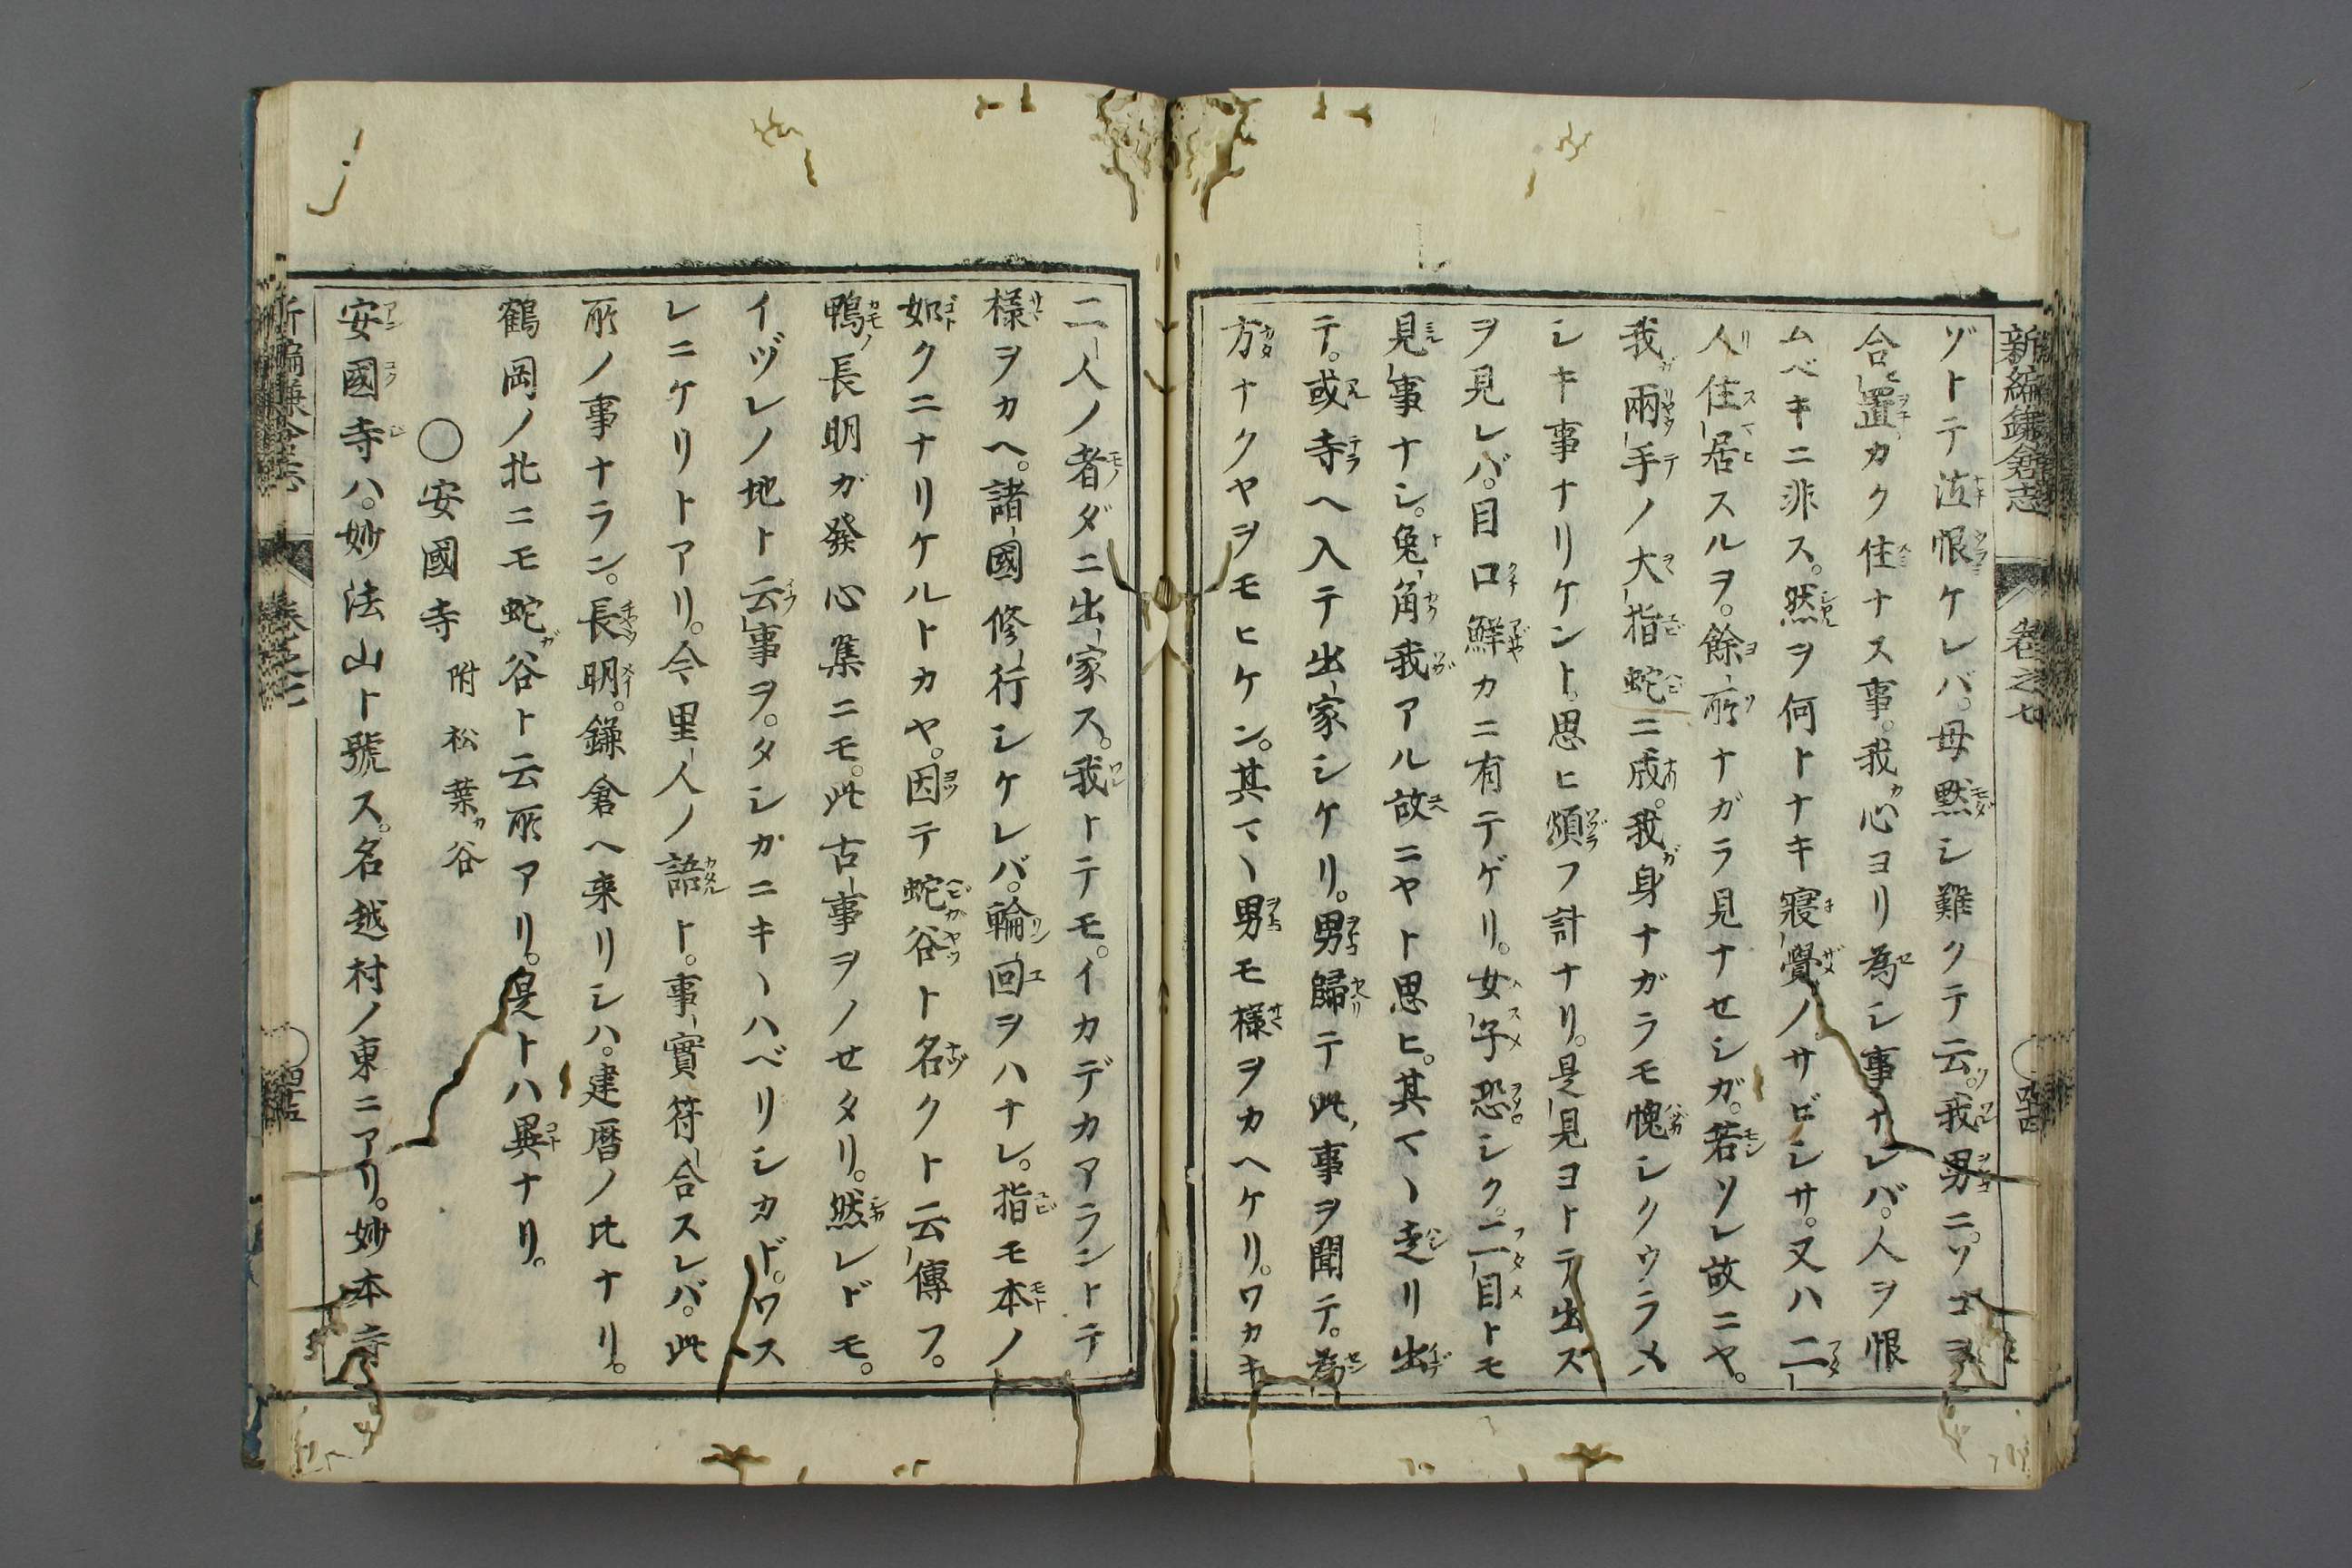 新編鎌倉志 卷之七 〇四十四
ゾトテ泣恨ケレバ。母黙シ難クテ云。我男ニ。ソコヲ
合置カク住ナス事。我心ヨリ為シ事ナレバ。人ヲ恨
ムベキニ非ス。然ヲ何トナキ寢覺ノサビシサ。又ハ二
人住居スルヲ。餘所ナガラ見ナセシガ。若ソレ故ニヤ。
我兩手ノ大指蛇ニ成。我身ナガラモ愧シクウラメ
シキ事ナリケント。思ヒ煩フ計ナリ。是見ヨトテ出ス
ヲ見レバ。目口鮮カニ有テゲリ。女子恐シク。二目トモ
見事ナシ。兔角我アル故ニヤト思ヒ。其マヽ走リ出
テ。或寺ヘ入テ出家シケリ。男歸テ此事ヲ聞テ。為
方ナクヤヲモヒケン。其マヽ男モ樣ヲカヘケリ。ワカキ
二人ノ者ダニ出家ス。我トテモ。イカデカアラントテ
樣ヲカヘ。諸國修行シケレバ。輪回ヲハナレ。指モ本ノ
如クニナリケルトカヤ。因テ蛇谷ト名クト云傳フ。
鴨長明ガ發心集ニモ。此古事ヲノせタリ。然レドモ。
イヅレノ地ト云事ヲ。タシカニキヽハベリシカド。ワス
レニケリトアリ。今里人ノ語ト。事實符合スレバ。此
所ノ事ナラン。長明。鎌倉ヘ来リシハ。建暦ノ比ナリ。
鶴岡ノ北ニモ蛇谷ト云所アリ。是トハ異ナリ。
〇安國寺 附松葉谷
安國寺ハ。妙法山ト號ス。名越村ノ東ニアリ。妙本寺